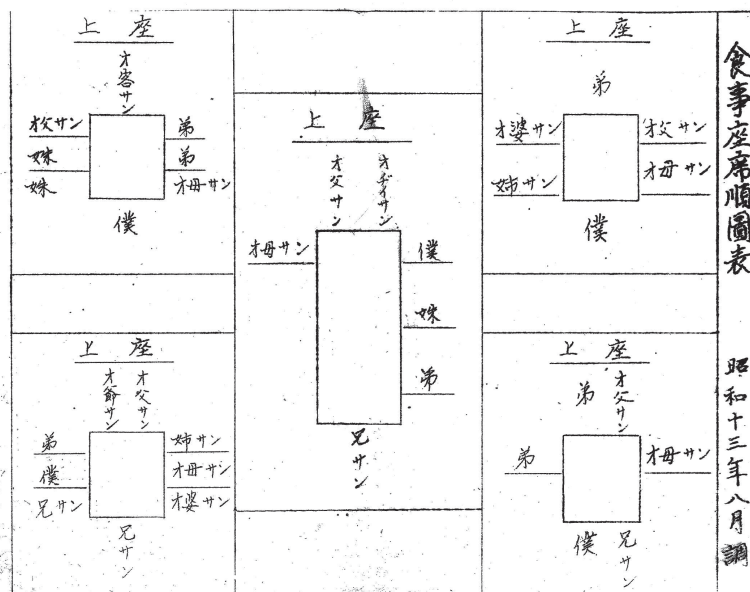 食事座席順圖表　昭和十三年八月調
上座
弟
オ婆サン
姉サン
オ父サン
オ母サン
僕
上座
弟
オ父サン
弟
オ母サン
僕
兄サン
上座
オ父サン
オヂイサン
オ母サン
僕
妹
弟
兄サン
上座
オ客サン
オ父サン
妹
妹
弟
弟
オ母サン
僕
上座
オ爺サン
オ父サン
弟
僕
兄サン
姉サン
オ母サン
オ婆サン
兄サン